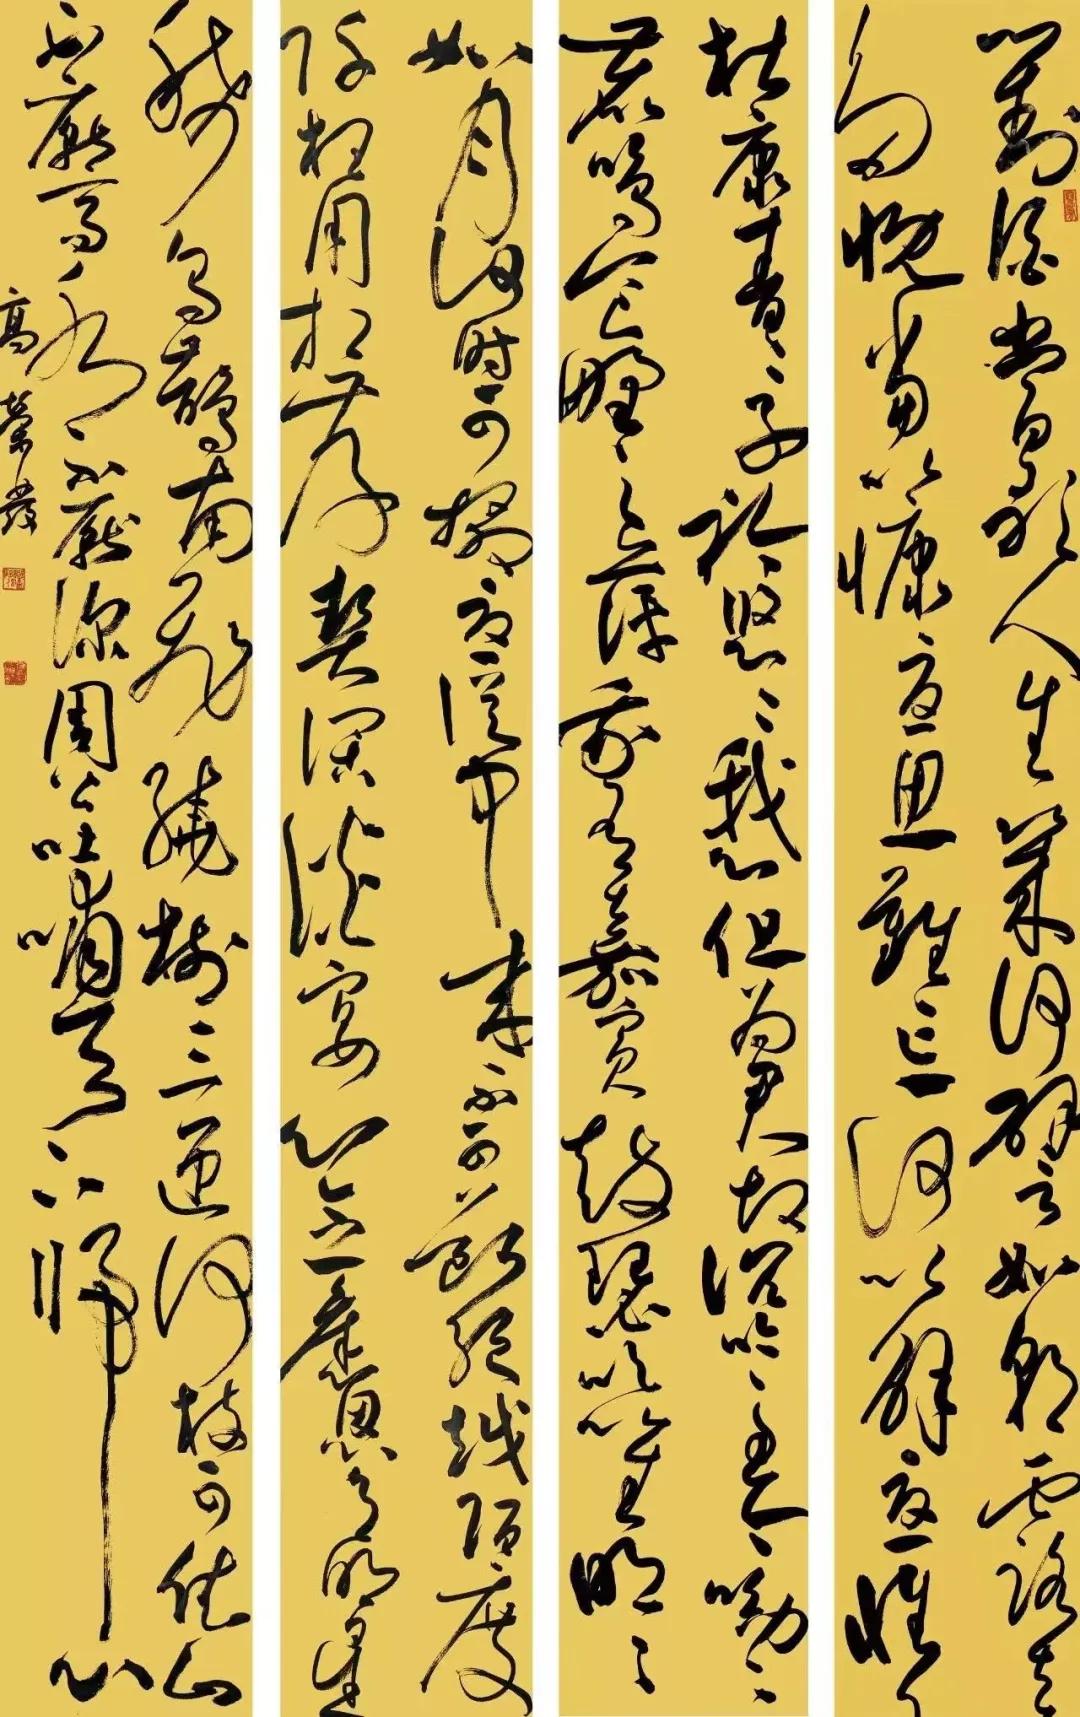 對酒當歌人生幾何譬如朝露去
慨當以慷憂思難忘何以解憂惟有
杜康青〻子衿悠〻我心但為君故沉吟至今呦〻
鹿鳴食野之苹我有嘉賓鼓瑟吹笙明〻
如月何時可掇憂從中來不可斷絕越陌度
阡枉用相存契闊談宴心念舊恩月明星
稀烏鵲南飛繞樹三匝何枝可依山
不厭高水不厭深周公吐哺天下歸心
高榮發